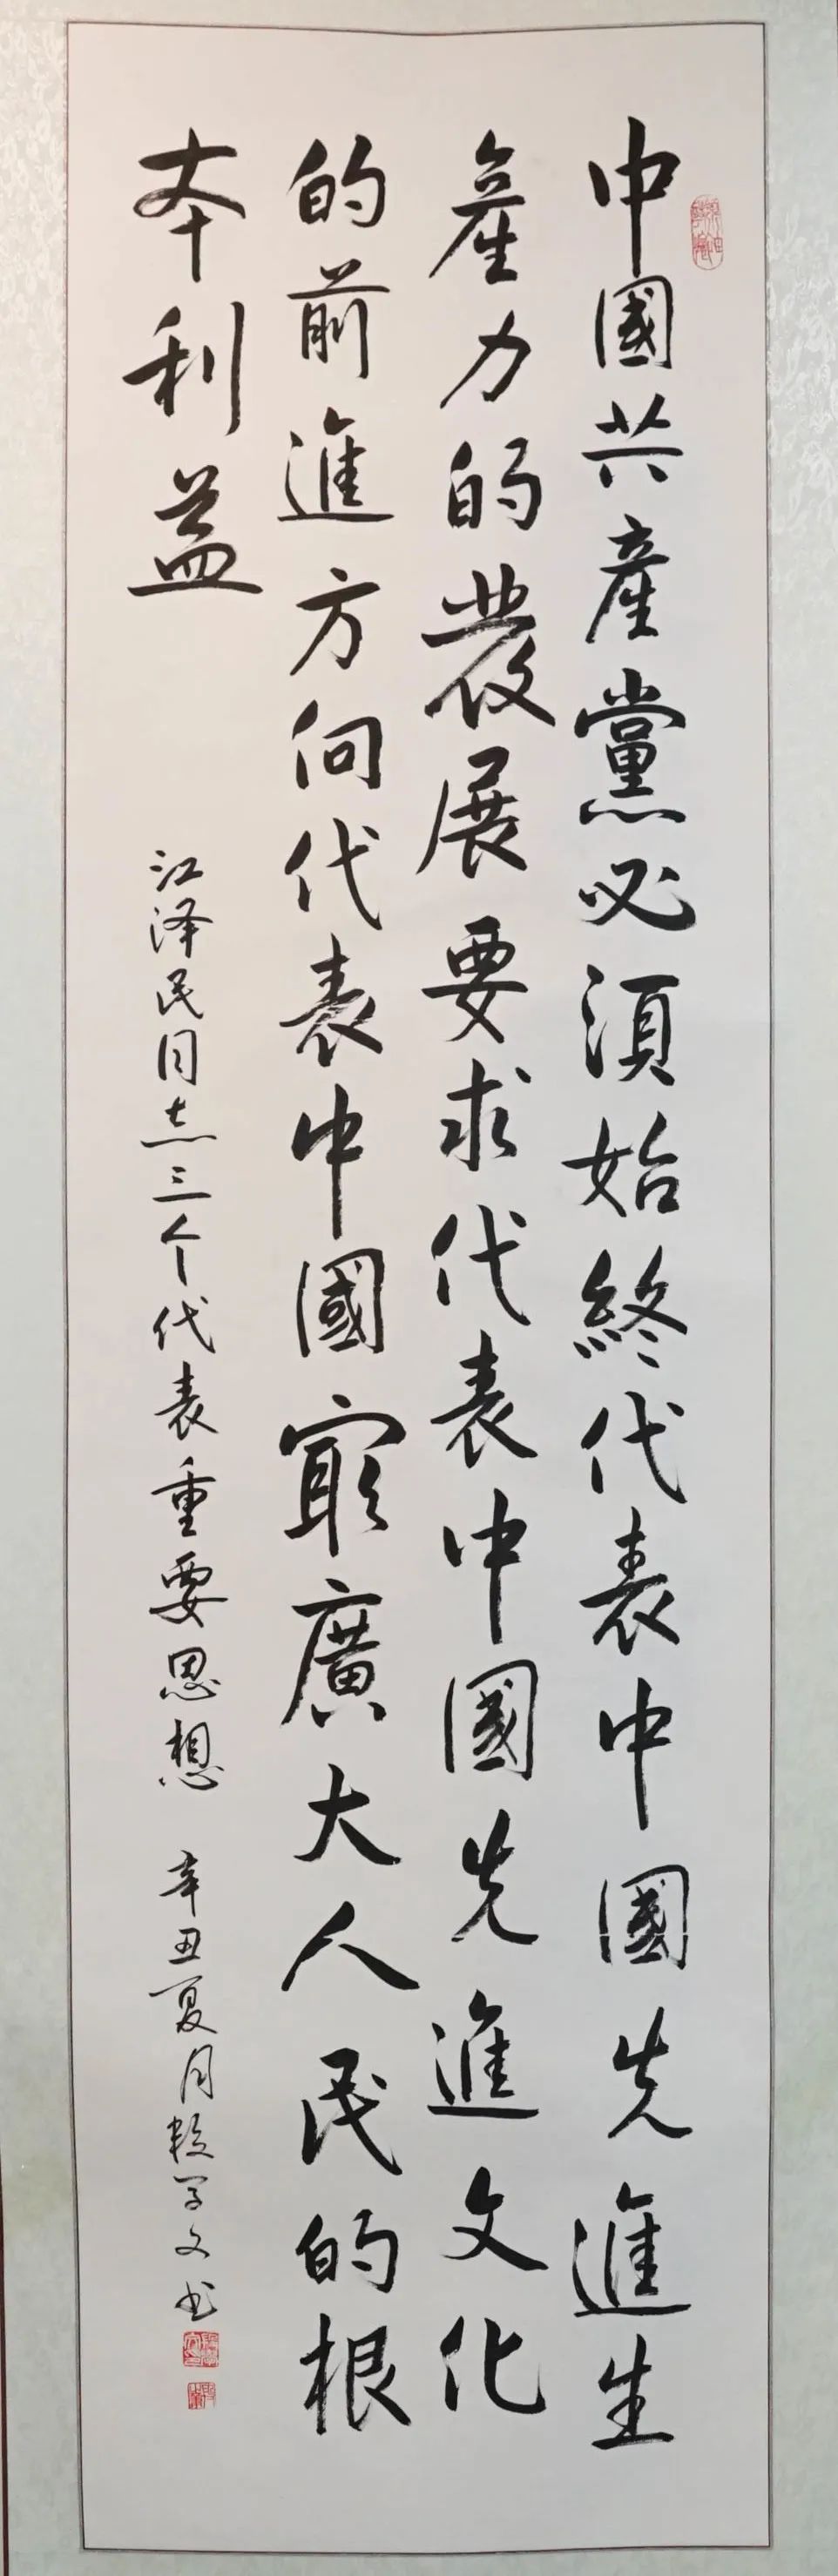 中國共產黨必須始終代表中國先進生
產力的發展要求代表中國先進文化
的前進方向代表中國最廣大人民的根
本利益
江泽民同志三个代表重要思想 辛丑夏月 文书